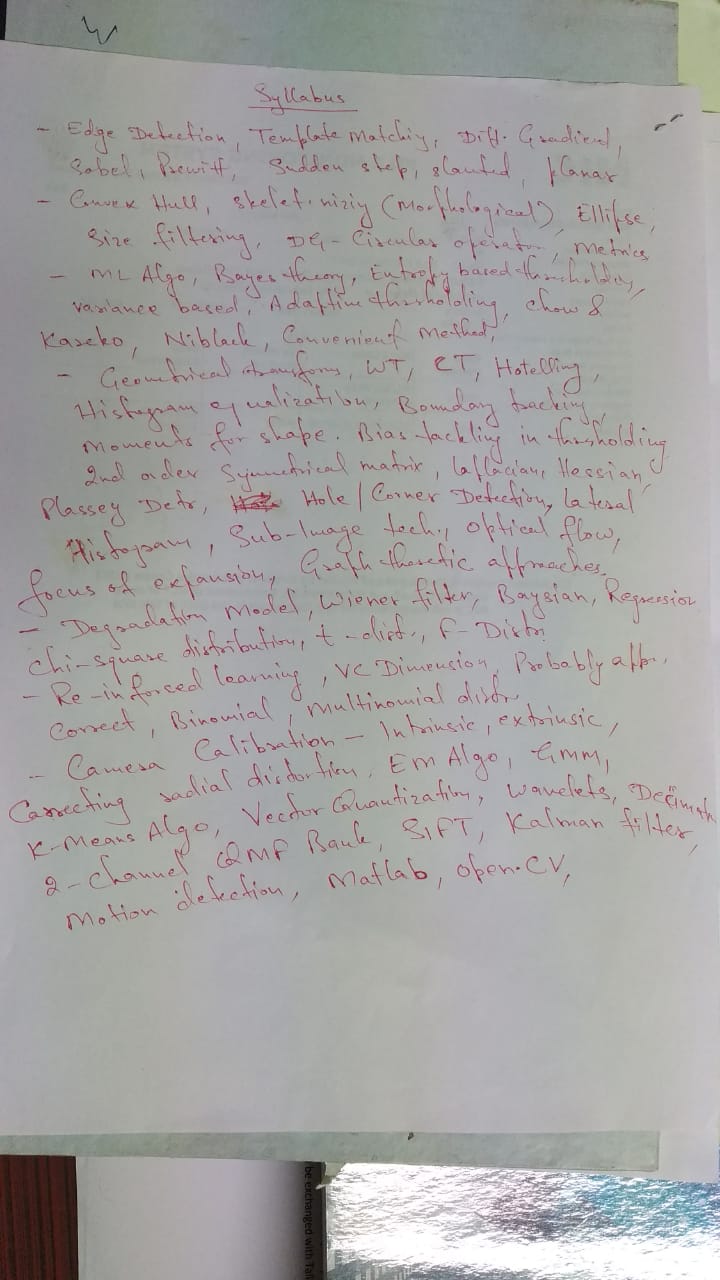 Syllabus
- Edge Detection, Template Matching, Diff. Gradient,
Sobel, Prewitt, Sudden step, slanted, planar
- Convex Hull, skeletonizing (Morphological), Ellipse,
Size filtering, DG - Circular operator, Metrics
- ML Algo, Bayes theory, Entropy based thresholding,
variance based, Adaptive thresholding, Chow &
Kaneko, Niblack, Convenient Method,
- Geometrical transforms, WT, CT, Hotelling,
Histogram equalization, Boundary tracking,
Moments for shape. Bias tackling in thresholding
2nd order Symmetrical matrix, Laplacian, Hessian,
Plassey Detr, Hole/Corner Detection, Lateral
Histogram, Sub-Image tech., optical flow,
focus of expansion, Graph theoretic approaches.
- Degradation Model, Wiener filter, Baysian, Regression
Chi-square distribution, t-dist., F-Distri
- Re-inforced learning, VC Dimension, Probably app.,
Correct, Binomial, Multinomial distr
- Camera Calibration - Intrinsic, extrinsic,
Correcting radial distortion, EM Algo, GMM,
K-Means Algo, Vector Quantization, Wavelets,
2-channel QMF Bank, SIFT, Kalman filter,
Motion detection, Matlab, open.CV,
be exchanged with